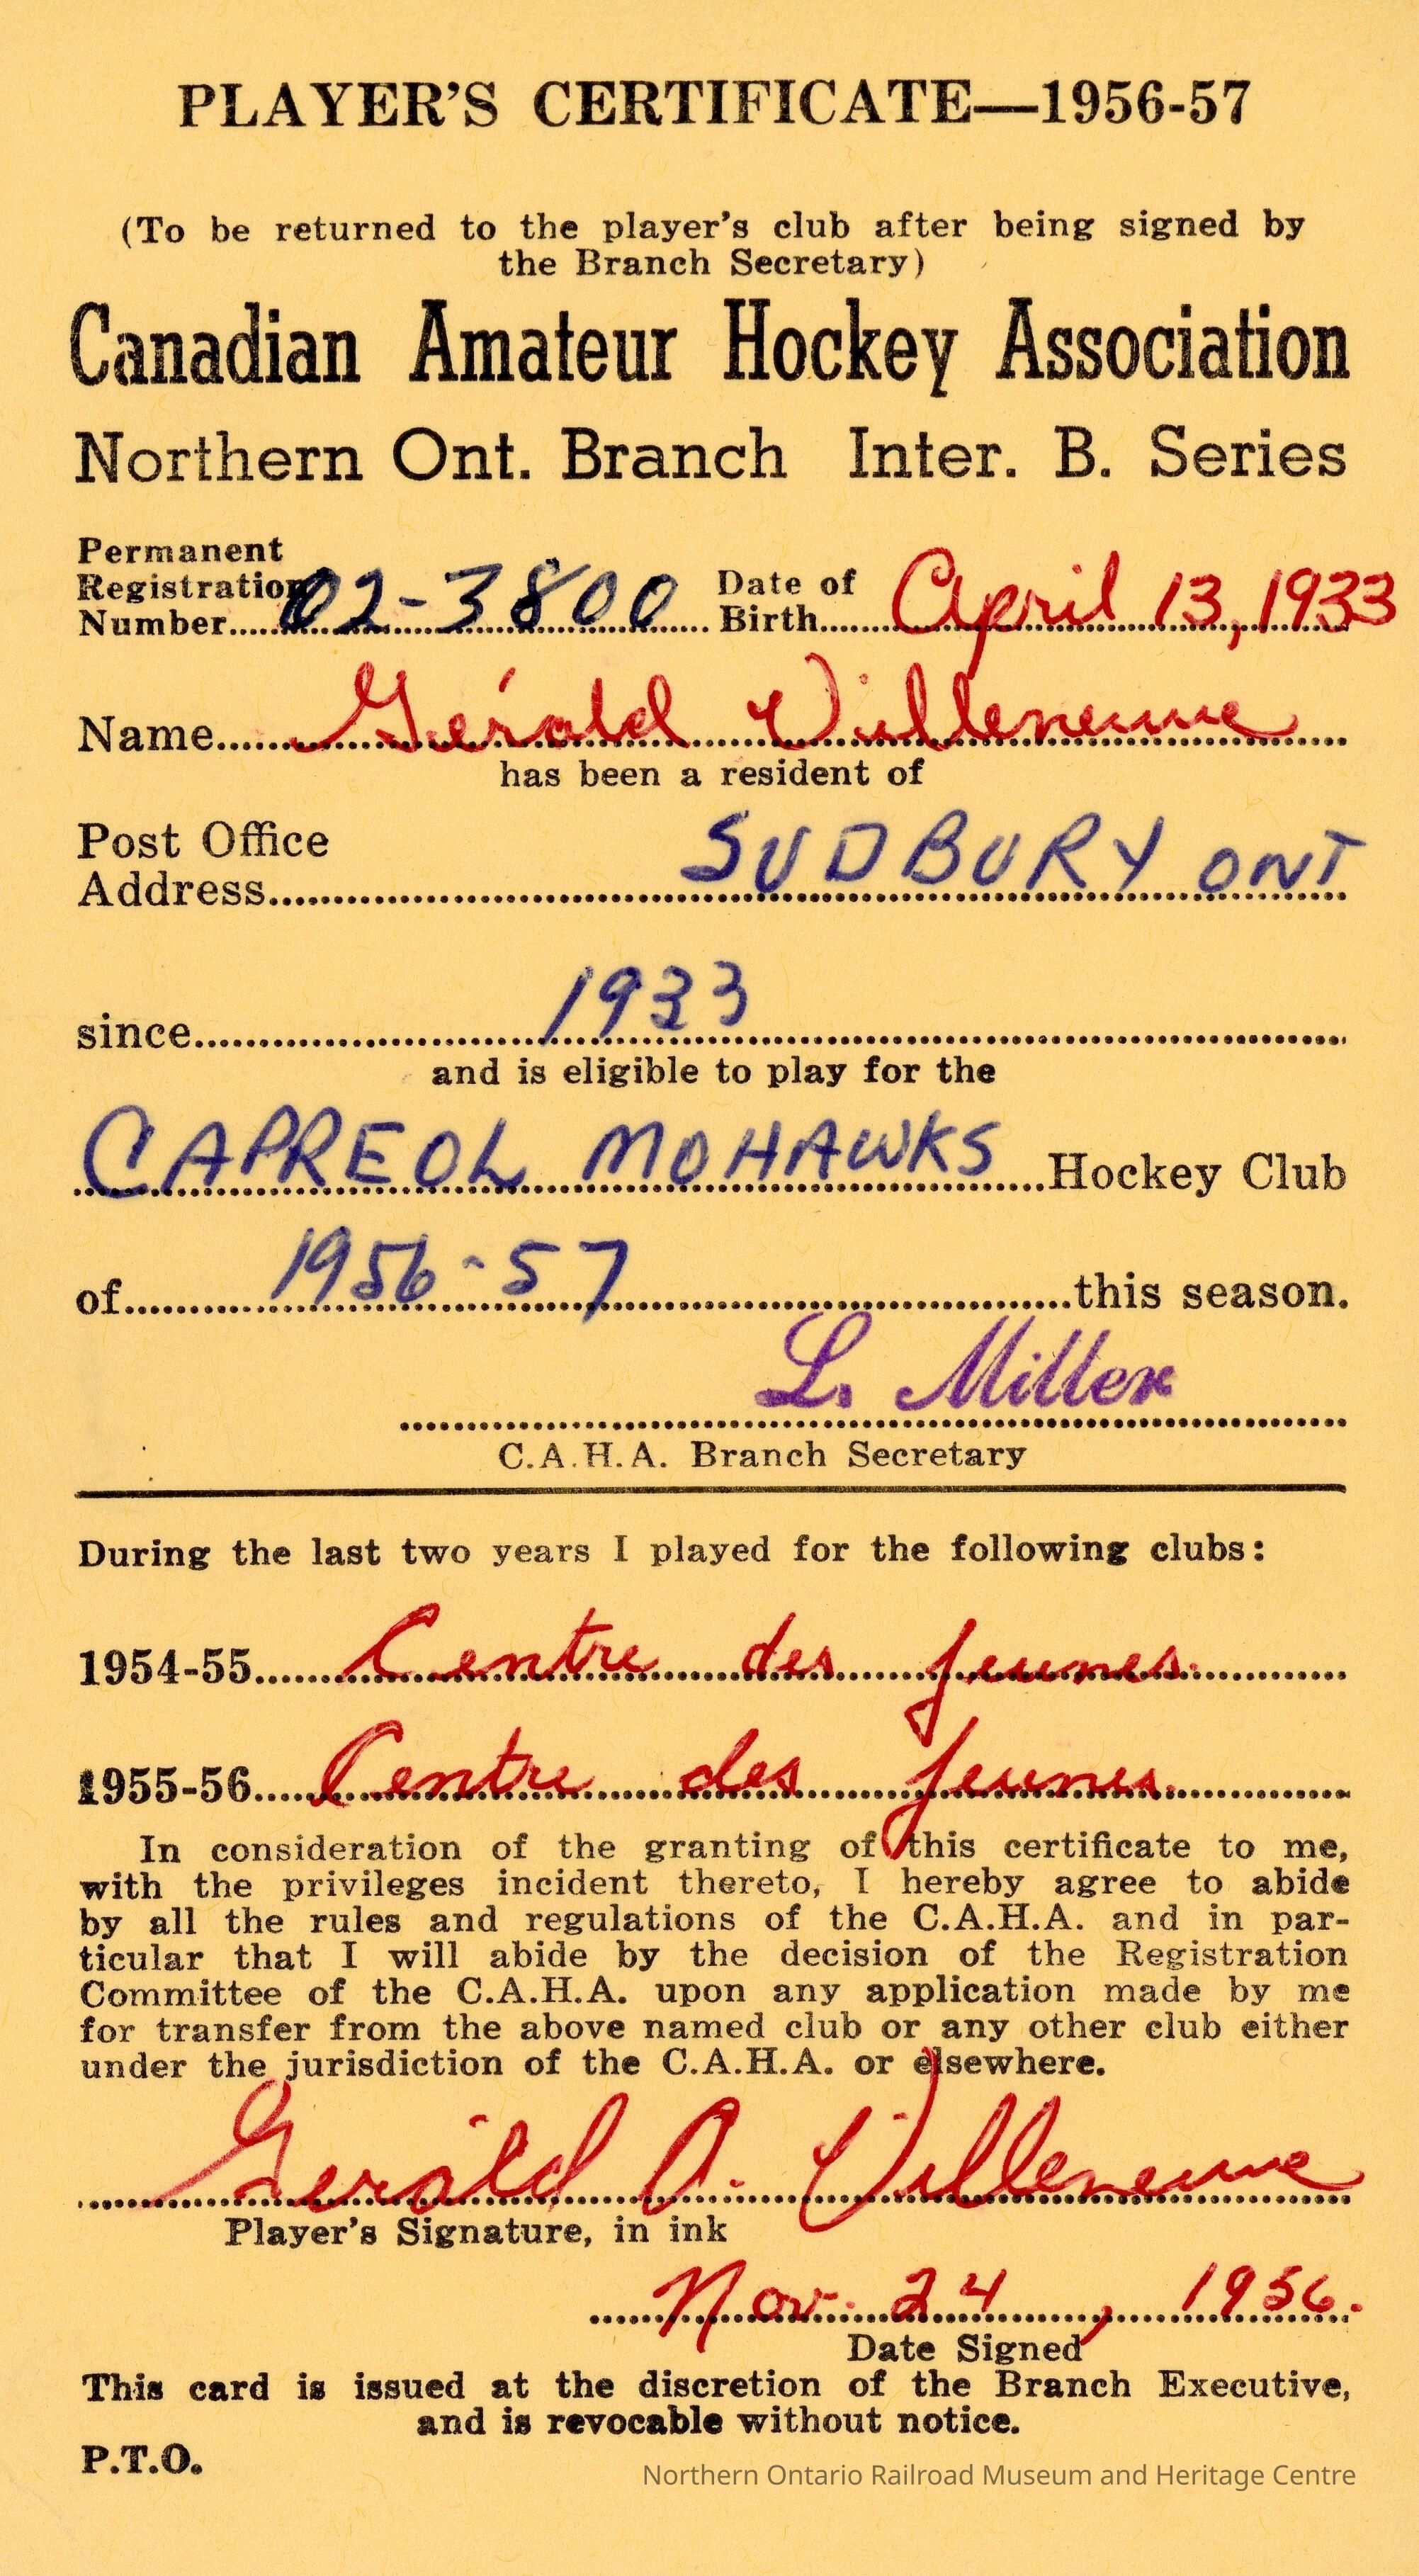 PLAYER'S CERTIFICATE—1956-57
(To be returned to the player's club after being signed by
the Branch Secretary)
Canadian Amateur Hockey Association
Northern Ont. Branch Inter. B. Series
Permanent
Registration
Number 02-3800 Date of
Birth April 13, 1933
Name Gérald Villeneuve
has been a resident of
Post Office
Address SUDBURY ONT
since 1933
and is eligible to play for the
CAPREOL MOHAWKS Hockey Club
of 1956-57 this season.
L. Miller
C.A.H.A. Branch Secretary
During the last two years I played for the following clubs:
1954-55 Centre des Jeunes.
1955-56 Centre des Jeunes.
In consideration of the granting of this certificate to me,
with the privileges incident thereto, I hereby agree to abide
by all the rules and regulations of the C.A.H.A. and in par-
ticular that I will abide by the decision of the Registration
Committee of the C.A.H.A. upon any application made by me
for transfer from the above named club or any other club either
under the jurisdiction of the C.A.H.A. or elsewhere.
Gerald A. Villeneuve
Player's Signature, in ink
Nov. 24, 1956.
Date Signed
This card is issued at the discretion of the Branch Executive,
and is revocable without notice.
P.T.O.
Northern Ontario Railroad Museum and Heritage Centre